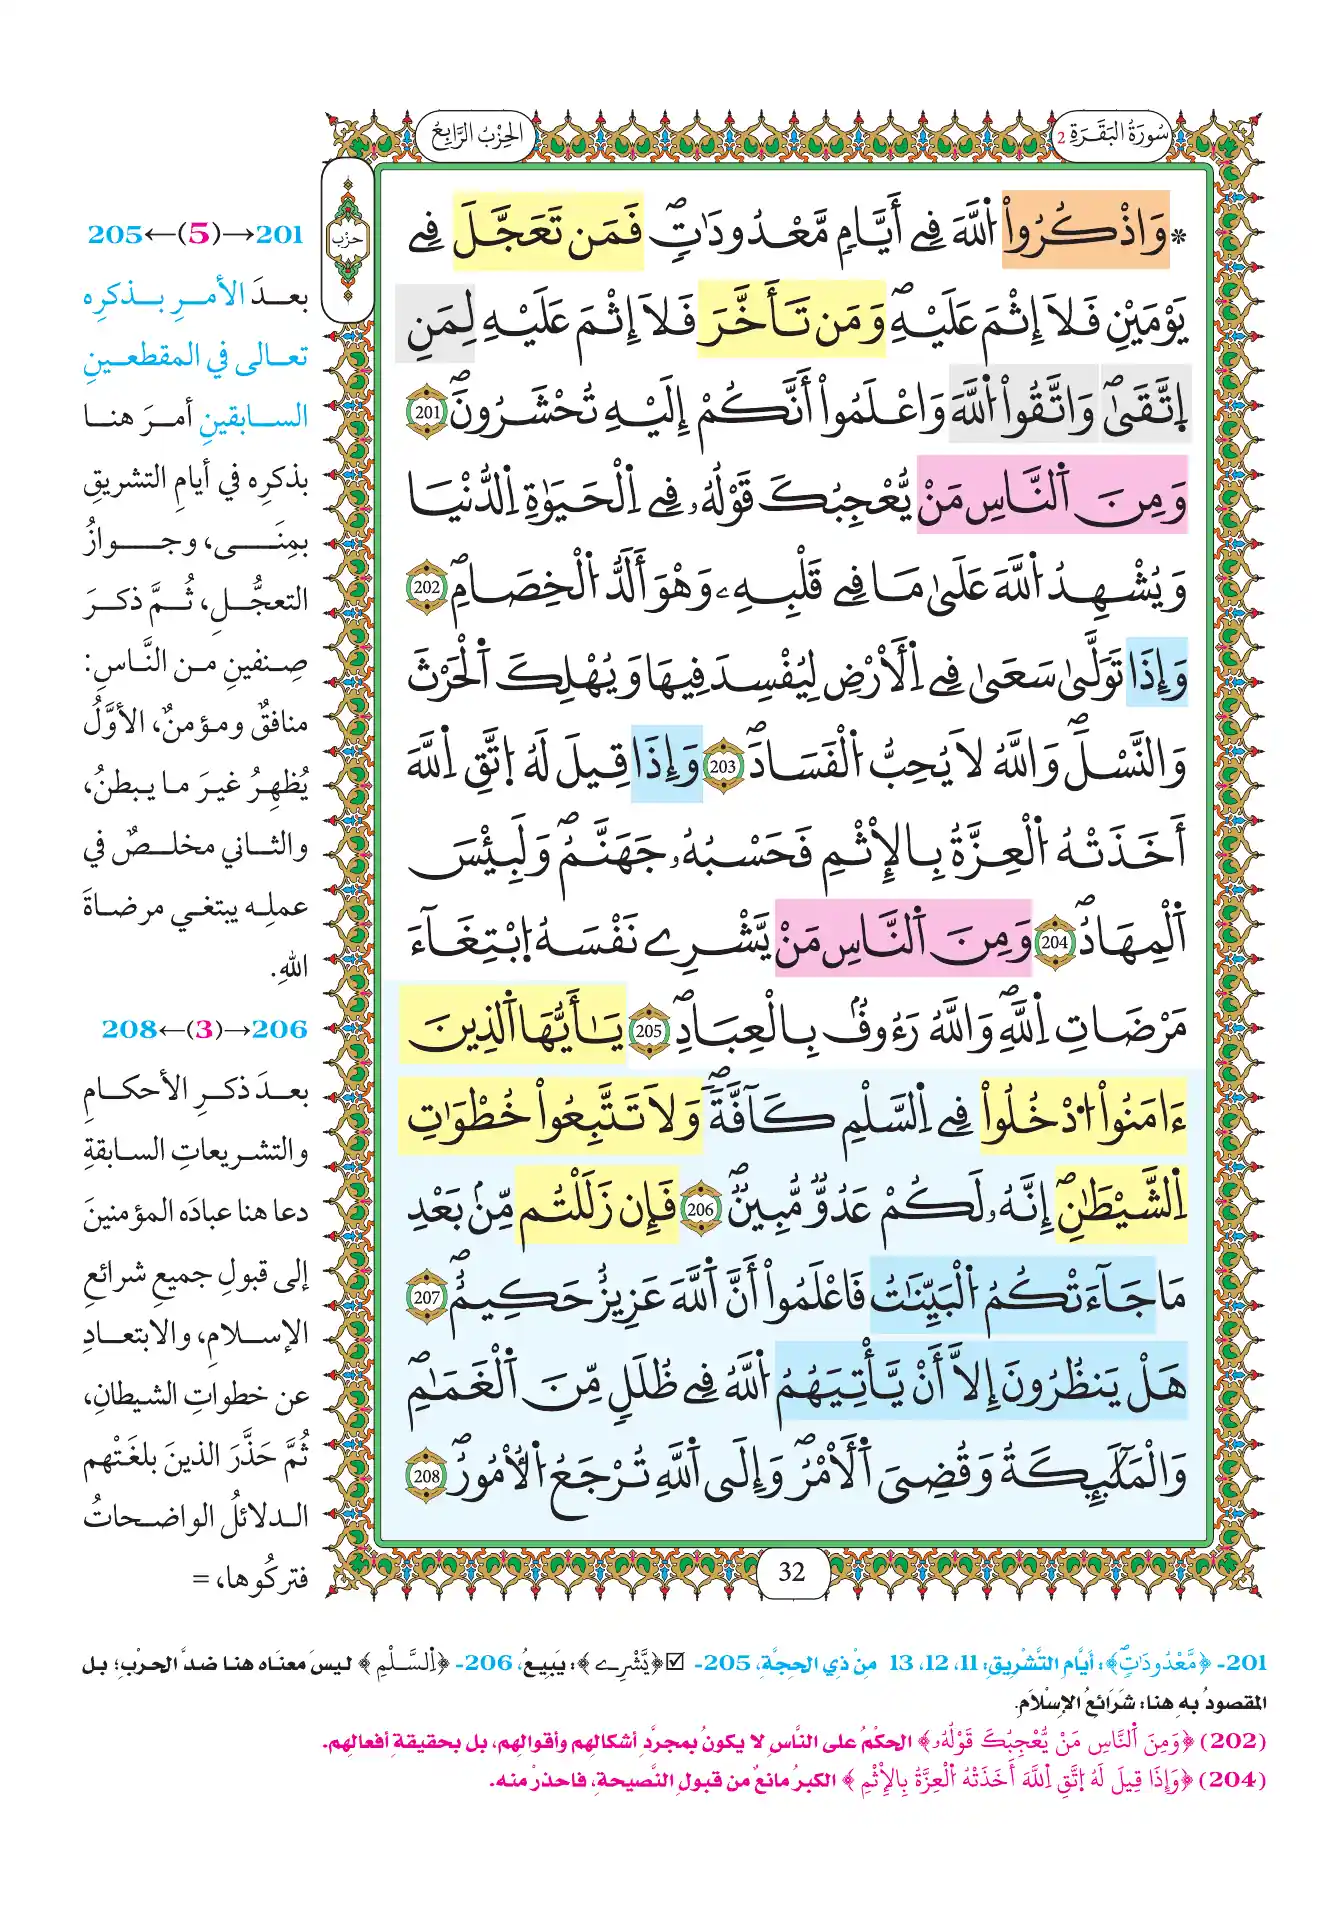 سُورَةُ البَقَرَةِ 2
الحِزْبُ الرَّابِعُ
حزب
* وَاذْكُرُواْ اُ۬للَّهَ فِےٓ أَيَّامٖ مَّعْدُودَٰتٖۖ فَمَن تَعَجَّلَ فِے
يَوْمَيْنِ فَلَآ إِثْمَ عَلَيْهِۖ وَمَن تَأَخَّرَ فَلَآ إِثْمَ عَلَيْهِ لِمَنِ
اِ۪تَّق۪ىٰۖ وَاتَّقُواْ اُ۬للَّهَ وَاعْلَمُوٓاْ أَنَّكُمْ إِلَيْهِ تُحْشَرُونَۖ 201
وَمِنَ اَ۬لنَّاسِ مَنْ يُّعْجِبُكَ قَوْلُهُۥ فِے اِ۬لْحَيَوٰةِ اِ۬لدُّنْي۪ا
وَيُشْهِدُ اُ۬للَّهَ عَلَىٰ مَا فِے قَلْبِهِۦ وَهْوَ أَلَدُّ اُ۬لْخِصَامِۖ 202
وَإِذَا تَوَلَّىٰ سَعَىٰ فِے اِ۬لْأَرْضِ لِيُفْسِدَ فِيهَا وَيُهْلِكَ اَ۬لْحَرْثَ
وَالنَّسْلَۖ وَاللَّهُ لَا يُحِبُّ اُ۬لْفَسَادَۖ 203 وَإِذَا قِيلَ لَهُ اُ۪تَّقِ اِ۬للَّهَ
أَخَذَتْهُ اُ۬لْعِزَّةُ بِالْإِثْمِ فَحَسْبُهُۥ جَهَنَّمُۖ وَلَبِيْسَ
اَ۬لْمِهَادُۖ 204 وَمِنَ اَ۬لنَّاسِ مَنْ يَّشْرِے نَفْسَهُ اُ۪بْتِغَآءَ
مَرْضَاتِ اِ۬للَّهِۖ وَاللَّهُ رَءُوفُۢ بِالْعِبَادِۖ 205 يَٰٓأَيُّهَا اَ۬لذِينَ
ءَامَنُواْ اُ۟دْخُلُواْ فِے اِ۬لسَّلْمِ كَآفَّةٗۖ وَلَا تَتَّبِعُواْ خُطْوَٰتِ
اِ۬لشَّيْطَٰنِۖ إِنَّهُۥ لَكُمْ عَدُوّٞ مُّبِينٞۖ 206 فَإِن زَلَلْتُم مِّنۢ بَعْدِ
مَا جَآءَتْكُمُ اُ۬لْبَيِّنَٰتُ فَاعْلَمُوٓاْ أَنَّ اَ۬للَّهَ عَزِيزٌ حَكِيمٌۖ 207
هَلْ يَنظُرُونَ إِلَّآ أَنْ يَّأْتِيَهُمُ اُ۬للَّهُ فِے ظُلَلٖ مِّنَ اَ۬لْغَمَٰمِۖ
وَالْمَلَٰٓئِكَةُ وَقُضِيَ اَ۬لْأَمْرُۖ وَإِلَى اَ۬للَّهِ تُرْجَعُ اُ۬لْأُمُورُۖ 208
32
201→(5)←205
بعدَ الأمرِ بذكرِه
تعالى في المقطعينِ
السابقينِ أمرَ هنا
بذكرِه في أيامِ التشريقِ
بمِنَى، وجوازُ
التعجُّلِ، ثُمَّ ذكرَ
صِنفينِ من النَّاسِ:
منافقٌ ومؤمنٌ، الأوَّلُ
يُظهِرُ غيرَ ما يبطنُ،
والثاني مخلصٌ في
عملِه يبتغي مرضاةَ
اللهِ.
206→(3)←208
بعدَ ذكرِ الأحكامِ
والتشريعاتِ السابقةِ
دعا هنا عبادَه المؤمنينَ
إلى قبولِ جميعِ شرائعِ
الإسلامِ، والابتعادِ
عن خطواتِ الشيطانِ،
ثُمَّ حَذَّرَ الذينَ بلغَتْهم
الدلائلُ الواضحاتُ
فتركُوها، =
201- ﴿مَّعْدُودَٰتٖۖ﴾: أيَّام التَّشْرِيقِ: 11، 12، 13 مِنْ ذي الحِجَّةِ، 205- ☑﴿يَّشْرِے﴾: يَبِيعُ، 206- ﴿اِ۬لسَّلْمِ﴾ ليسَ معنَاه هنا ضدَّ الحرْبِ؛ بل
المقصودُ به هنا: شَرَائعُ الإسْلَام.
(202) ﴿وَمِنَ اَ۬لنَّاسِ مَنْ يُّعْجِبُكَ قَوْلُهُۥ﴾ الحكْمُ على النَّاسِ لا يكونُ بمجرَّدِ أشكالِهم وأقوالِهم، بل بحقيقةِ أفعالِهم.
(204) ﴿وَإِذَا قِيلَ لَهُ اُ۪تَّقِ اِ۬للَّهَ أَخَذَتْهُ اُ۬لْعِزَّةُ بِالْإِثْمِ﴾ الكبرُ مانعٌ من قبولِ النَّصيحةِ، فاحذرْ منه.